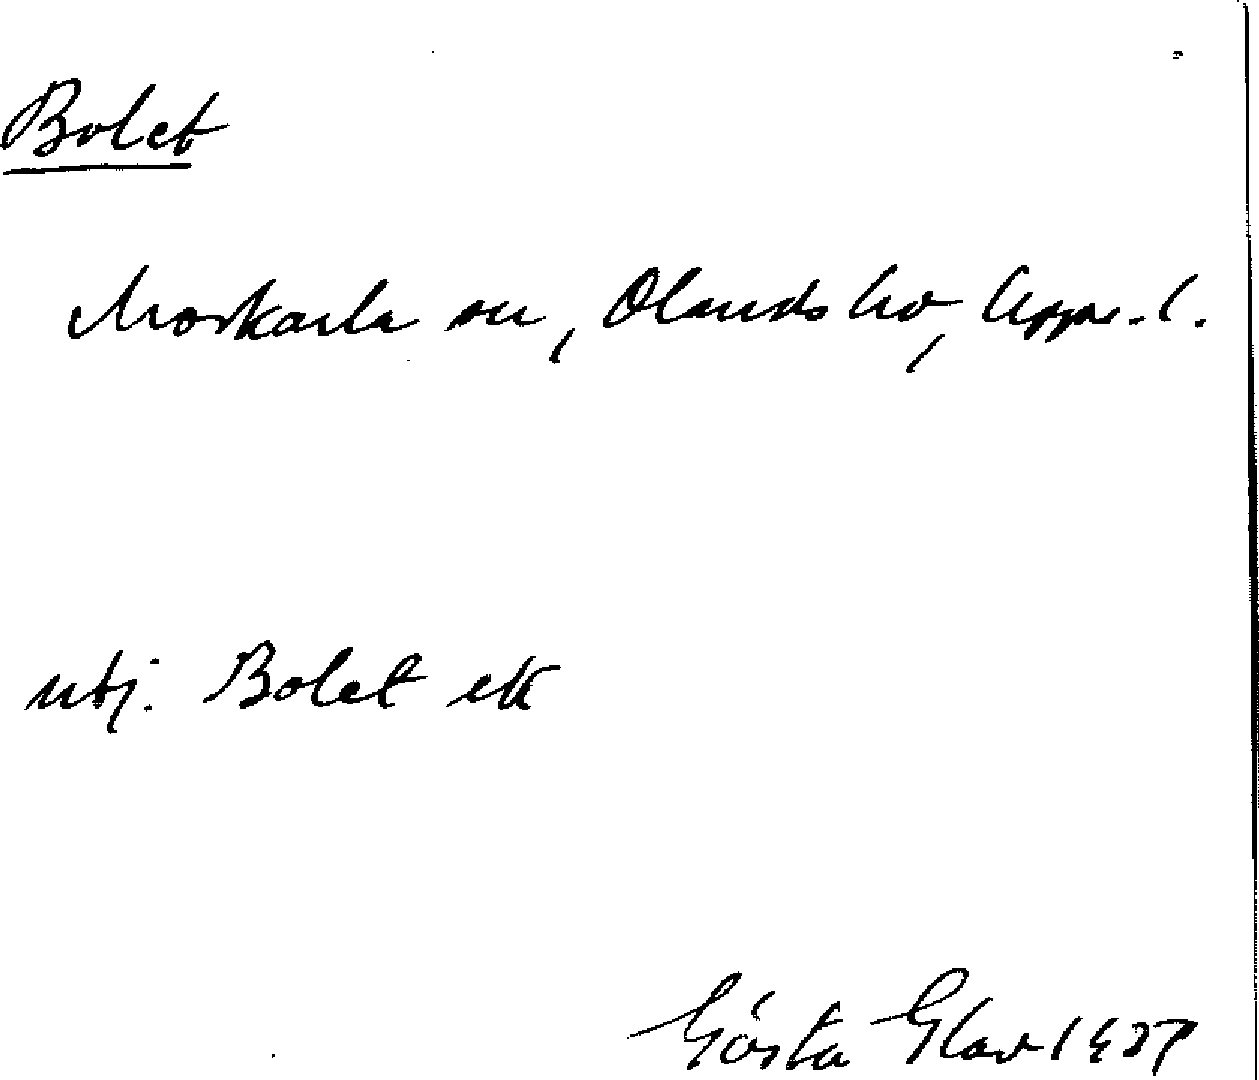 Bolet
Morkarla sn, Olands hd, Upps. l.
utj. Bolet ek
Gösta Glav 1937